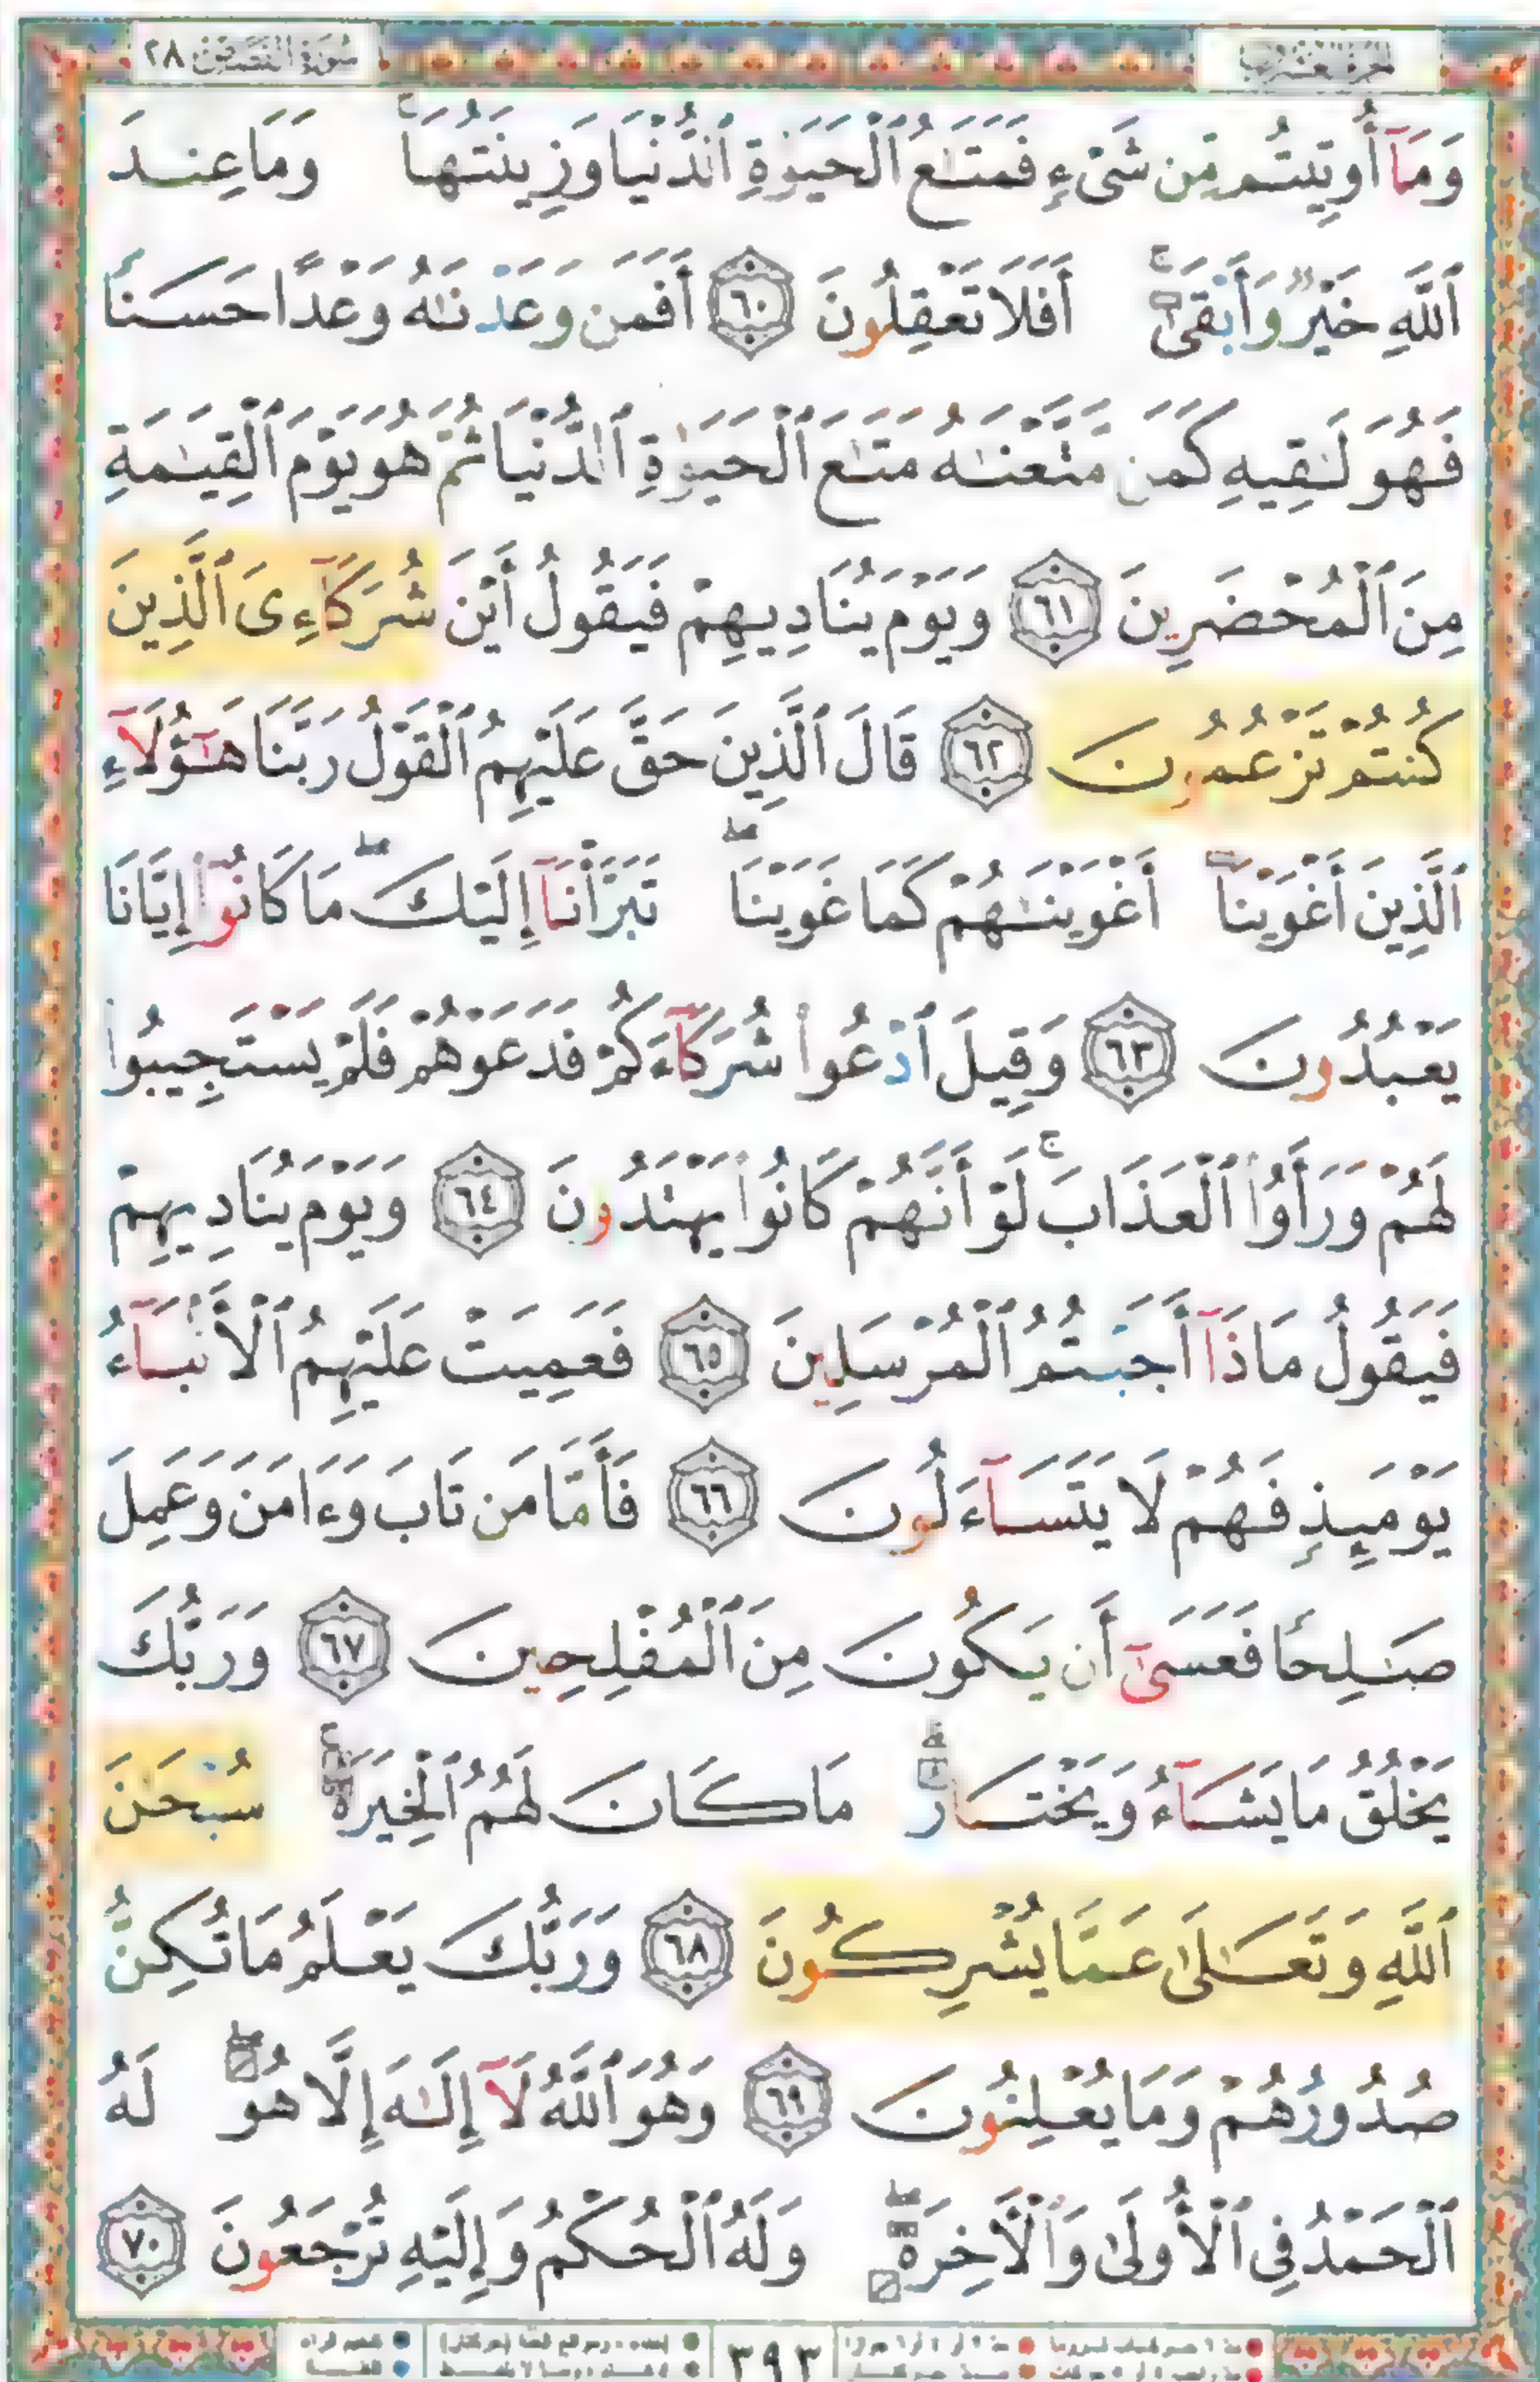 سُورَةُ القَصَصِ ٢٨
الجزء العشرون
وَمَآ أُوتِيتُم مِّن شَىْءٍ فَمَتَـٰعُ ٱلْحَيَوٰةِ ٱلدُّنْيَا وَزِينَتُهَا ۚ وَمَا عِندَ
ٱللَّهِ خَيْرٌ وَأَبْقَىٰٓ ۚ أَفَلَا تَعْقِلُونَ ٦٠ أَفَمَن وَعَدْنَـٰهُ وَعْدًا حَسَنًا
فَهُوَ لَـٰقِيهِ كَمَن مَّتَّعْنَـٰهُ مَتَـٰعَ ٱلْحَيَوٰةِ ٱلدُّنْيَا ثُمَّ هُوَ يَوْمَ ٱلْقِيَـٰمَةِ
مِنَ ٱلْمُحْضَرِينَ ٦١ وَيَوْمَ يُنَادِيهِمْ فَيَقُولُ أَيْنَ شُرَكَآءِىَ ٱلَّذِينَ
كُنتُمْ تَزْعُمُونَ ٦٢ قَالَ ٱلَّذِينَ حَقَّ عَلَيْهِمُ ٱلْقَوْلُ رَبَّنَا هَـٰٓؤُلَآءِ
ٱلَّذِينَ أَغْوَيْنَآ أَغْوَيْنَـٰهُمْ كَمَا غَوَيْنَا ۖ تَبَرَّأْنَآ إِلَيْكَ ۖ مَا كَانُوٓا۟ إِيَّانَا
يَعْبُدُونَ ٦٣ وَقِيلَ ٱدْعُوا۟ شُرَكَآءَكُمْ فَدَعَوْهُمْ فَلَمْ يَسْتَجِيبُوا۟
لَهُمْ وَرَأَوُا۟ ٱلْعَذَابَ ۚ لَوْ أَنَّهُمْ كَانُوا۟ يَهْتَدُونَ ٦٤ وَيَوْمَ يُنَادِيهِمْ
فَيَقُولُ مَاذَآ أَجَبْتُمُ ٱلْمُرْسَلِينَ ٦٥ فَعَمِيَتْ عَلَيْهِمُ ٱلْأَنۢبَآءُ
يَوْمَئِذٍ فَهُمْ لَا يَتَسَآءَلُونَ ٦٦ فَأَمَّا مَن تَابَ وَءَامَنَ وَعَمِلَ
صَـٰلِحًا فَعَسَىٰٓ أَن يَكُونَ مِنَ ٱلْمُفْلِحِينَ ٦٧ وَرَبُّكَ
يَخْلُقُ مَا يَشَآءُ وَيَخْتَارُ ۗ مَا كَانَ لَهُمُ ٱلْخِيَرَةُ ۚ سُبْحَـٰنَ
ٱللَّهِ وَتَعَـٰلَىٰ عَمَّا يُشْرِكُونَ ٦٨ وَرَبُّكَ يَعْلَمُ مَا تُكِنُّ
صُدُورُهُمْ وَمَا يُعْلِنُونَ ٦٩ وَهُوَ ٱللَّهُ لَآ إِلَـٰهَ إِلَّا هُوَ ۖ لَهُ
ٱلْحَمْدُ فِى ٱلْأُولَىٰ وَٱلْـَٔاخِرَةِ ۖ وَلَهُ ٱلْحُكْمُ وَإِلَيْهِ تُرْجَعُونَ ٧٠
٣٩٣